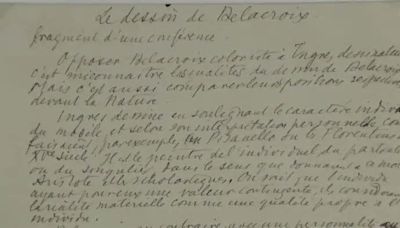 Le dessin de Delacroix
fragment d'une conférence.
Opposer Delacroix coloriste à Ingres, dessinateur
c'est méconnaître les qualités du dessin de Delacroix
Mais c'est aussi comparer leurs positions respectives
devant la Nature.
Ingres dessine en soulignant le caractère individ
du modèle et selon son interprétation personnelle, com
faisaient, par exemple, Pisanello ou les Florentins
XVe siècle. Il est le peintre de l'individuel du particul
ou du singulier, dans le sens que donnaient à ce mot
Aristote et les scholastiques. On sait que l'individu
ayant pour eux une valeur contingente, ils considéraient
la réalité matérielle comme une qualité propre à l'
individu.
contraire avec une personnalité